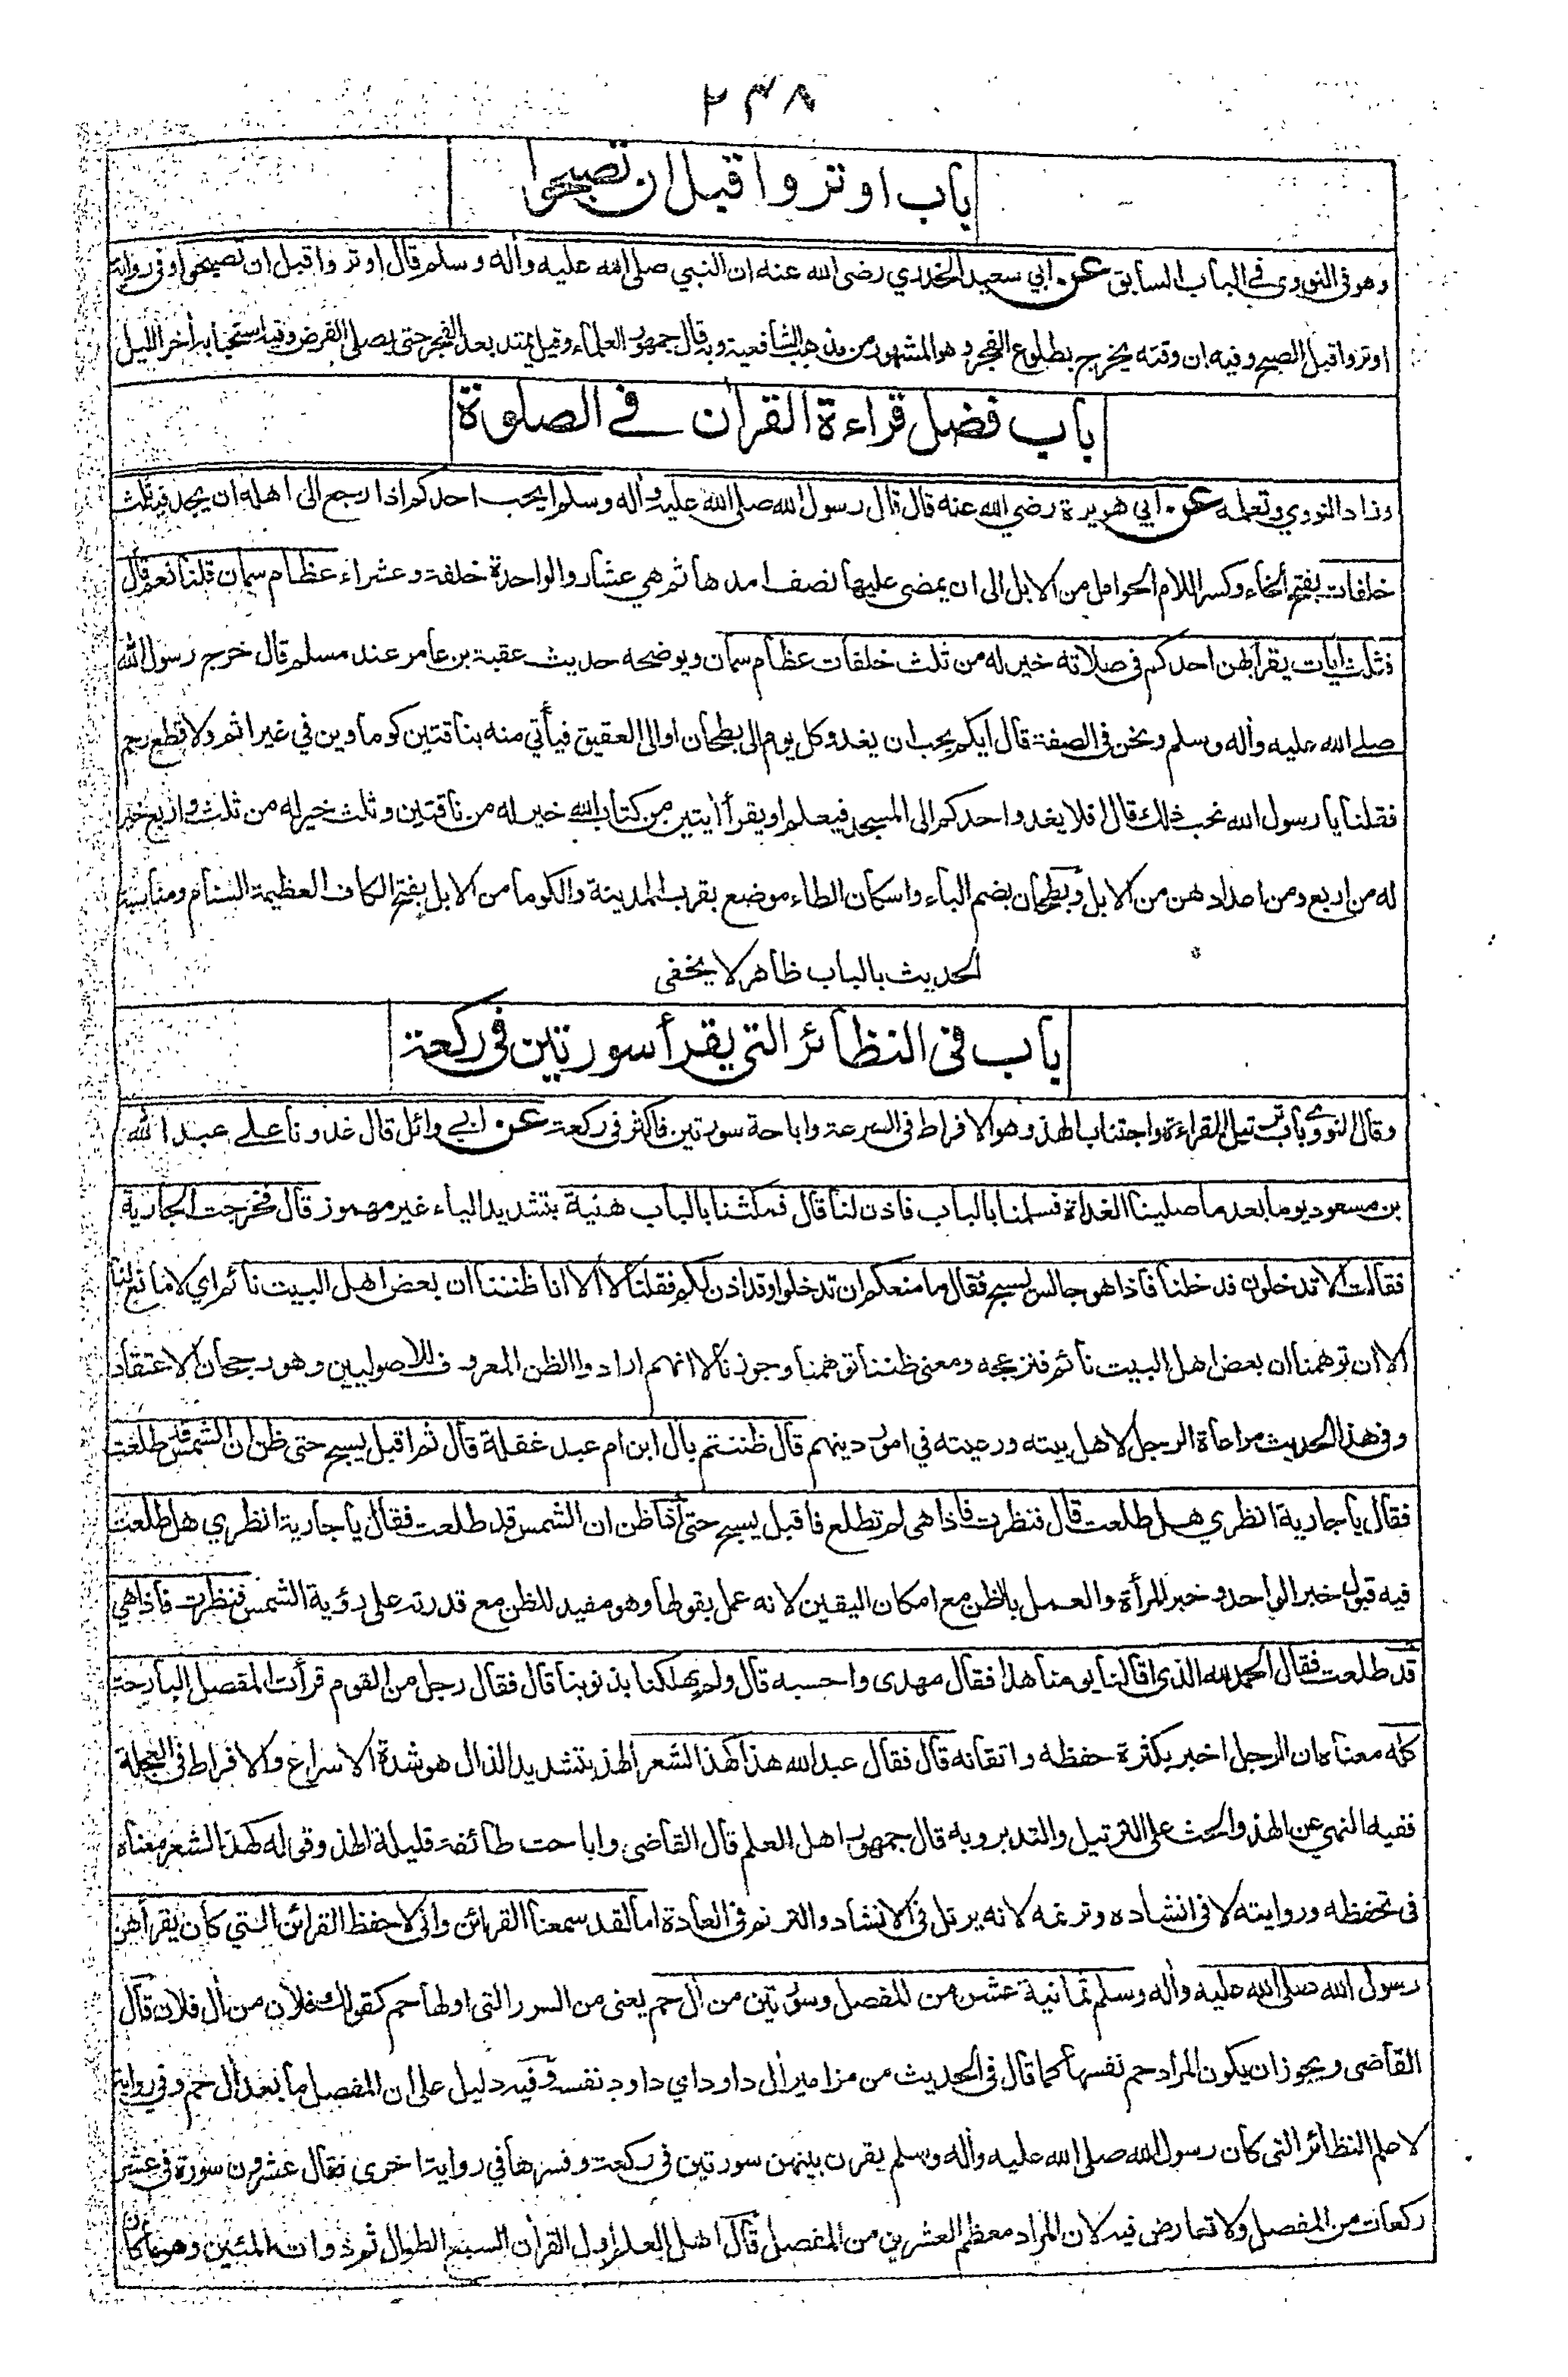 ٢٣٨
باب اوتروا قبل ان تصبحوا
وهو فى النووى فى الباب السابق عن ابي سعيد الخدري رضى الله عنه ان النبي صلى الله عليه وأله وسلم قال اوتروا قبل ان تصبحوا وفى رواية
اوتروا قبل الصبح وفيه ان وقته يخرج بطلوع الفجر وهو المشهور من مذهب الشافعية وبه قال جمهور العلماء وقيل يمتد بعد الفجر حتى يصلى الفرض وفيه استحبابه أخر الليل
باب فضل قراءة القرأن في الصلوة
وزاد النووي وتعلمه عن ابي هريرة رضي الله عنه قال قال رسول الله صلى الله عليه وأله وسلم ايحب احدكم اذا رجع الى اهله ان يجد فيه ثلث
خلفات بفتح الخاء وكسر اللام الحوامل من الابل الى ان يمضى عليها نصف امدها ثم هي عشار والواحدة خلفة وعشراء عظام سمان قلنا نعم قال
فثلث أيات يقرأ بهن احدكم فى صلاته خير له من ثلث خلفات عظام سمان ويوضحه حديث عقبة بن عامر عند مسلم قال خرج رسول الله
صلى الله عليه وأله وسلم ونحن فى الصفة قال ايكم يحب ان يغدو كل يوم الى بطحان او الى العقيق فيأتي منه بناقتين كوماوين في غير اثم ولا قطع رحم
فقلنا يا رسول الله نحب ذلك قال افلا يغدو احدكم الى المسجد فيعلم او يقرأ أيتين من كتاب الله خير له من ناقتين وثلث خير له من ثلث واربع خير
له من اربع ومن اعدادهن من الابل وبطحان بضم الباء واسكان الطاء موضع بقرب المدينة والكوما من الابل بفتح الكاف العظيمة السنام ومناسبة
الحديث بالباب ظاهر لا يخفى
باب فى النظائر التى يقرأ سورتين فى ركعة
وقال النووى باب ترتيل القراءة واجتناب الهذ وهو الافراط فى السرعة واباحة سورتين فاكثر فى ركعة عن ابي وائل قال غدونا على عبد الله
بن مسعود يوما بعد ما صلينا الغداة فسلمنا بالباب فاذن لنا قال فمكثنا بالباب هنية بتشديد الياء غير مهموز قال فخرجت الجارية
فقالت الا تدخلون فدخلنا فاذا هو جالس يسبح فقال ما منعكم ان تدخلوا وقد اذن لكم فقلنا لا الا انا ظننا ان بعض اهل البيت نائم اي لا مانع لنا
الا ان توهمنا ان بعض اهل البيت نائم فنزعجه ومعنى ظننا توهمنا وجوزنا لا انهم ارادوا الظن المعروف للاصوليين وهو رجحان الاعتقاد
وفى هذا الحديث مراعاة الرجل لاهل بيته ورعيته في امور دينهم قال ظننتم بال ابن ام عبد غفلة قال ثم اقبل يسبح حتى ظن ان الشمس قد طلعت
فقال يا جارية انظري هل طلعت قال فنظرت فاذا هى لم تطلع فاقبل يسبح حتى اذا ظن ان الشمس قد طلعت فقال يا جارية انظري هل طلعت
فيه قبول خبر الواحد وخبر المرأة والعمل بالظن مع امكان اليقين لانه عمل بقولها وهو مفيد للظن مع قدرته على رؤية الشمس فنظرت فاذا هي
قد طلعت فقال الحمد لله الذى اقالنا يومنا هذا فقال مهدى واحسبه قال ولم يهلكنا بذنوبنا قال فقال رجل من القوم قرأت المفصل البارحة
كله معناه ان الرجل اخبر بكثرة حفظه واتقانه قال فقال عبد الله هذا كهذ الشعر الهذ بتشديد الذال هو شدة الاسراع والافراط فى العجلة
ففيه النهى عن الهذ والحث على الترتيل والتدبر وبه قال جمهور اهل العلم قال القاضى واباحت طائفة قليلة الهذ وقوله كهذ الشعر معناه
فى تحفظه وروايته لا فى انشاده وترنمه لانه يرتل فى الانشاد والترنم فى العادة اما لقد سمعنا القرائن وانى لاحفظ القرائن التي كان يقرأهن
رسول الله صلى الله عليه وأله وسلم ثمانية عشر من المفصل وسورتين من أل حم يعنى من السور التى اولها حم كقولك فلان من أل فلان قال
القاضى ويجوز ان يكون المراد حم نفسها كما قال فى الحديث من مزامير أل داود اي داود نفسه وفيه دليل على ان المفصل ما بعد أل حم وفي رواية
لاعلم النظائر التى كان رسول الله صلى الله عليه وأله وسلم يقرن بينهن سورتين فى ركعة وفسرها في رواية اخرى فقال عشرون سورة فى عشر
ركعات من المفصل ولا تعارض فيه لان المراد معظم العشرين من المفصل قال اهل العلم اول القرأن السبع الطوال ثم ذوات المئين وهو ما كان